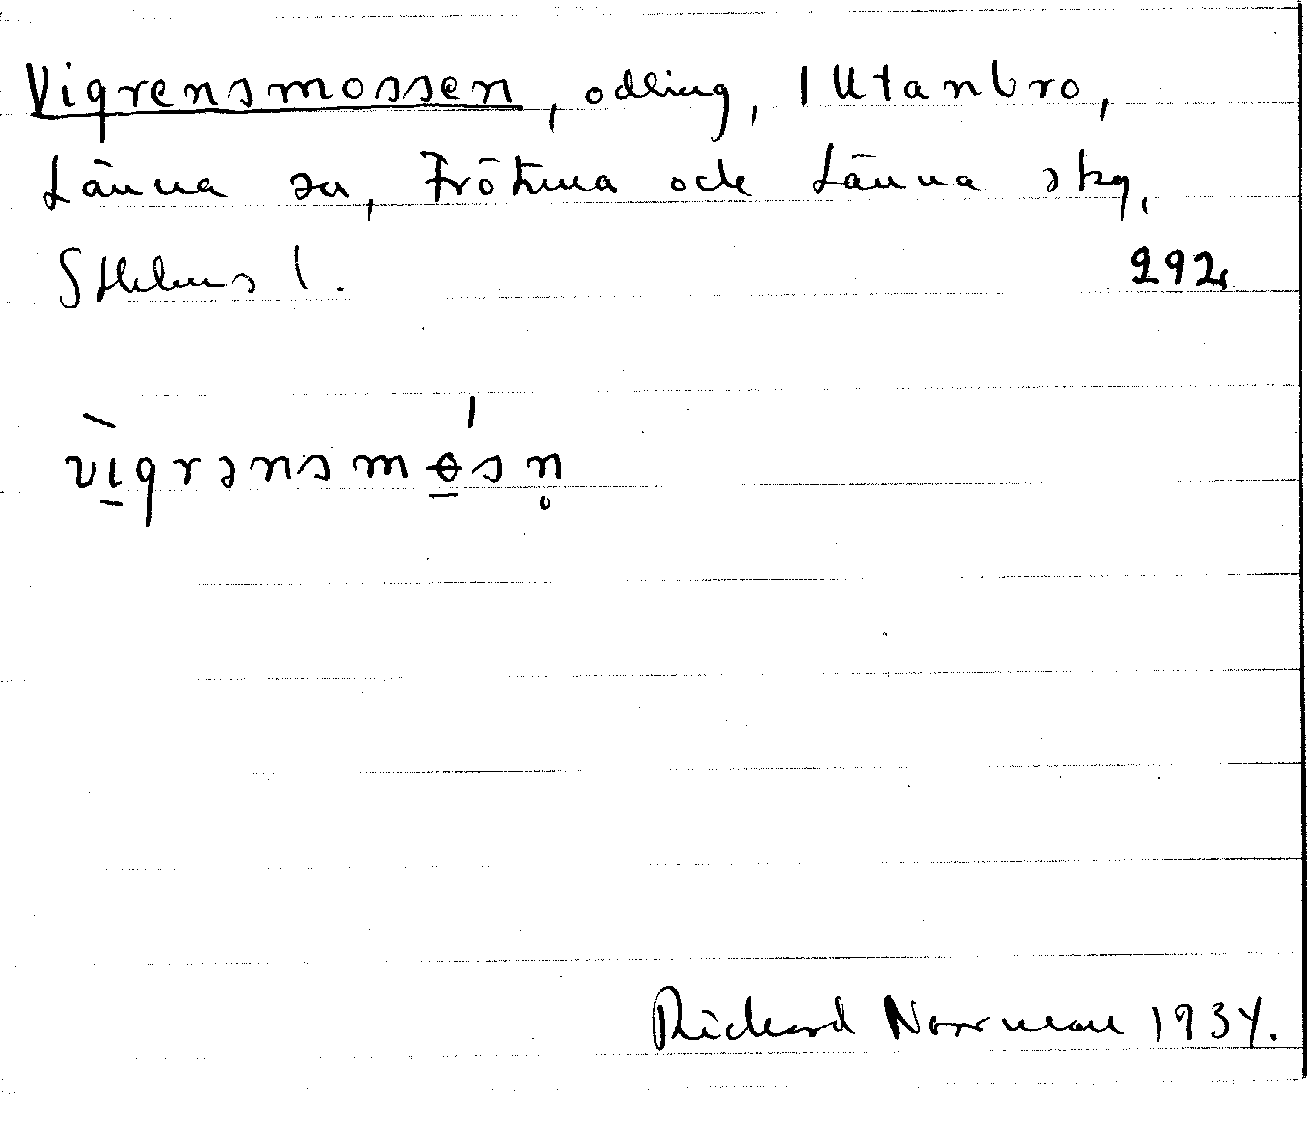 Vigrensmossen, odling, 1 Utanbro,
Länna sn, Frötuna och Länna skg,
Sthlms l. 292
vìgrənsmɵ́sn̥
Richard Norrman 1934.